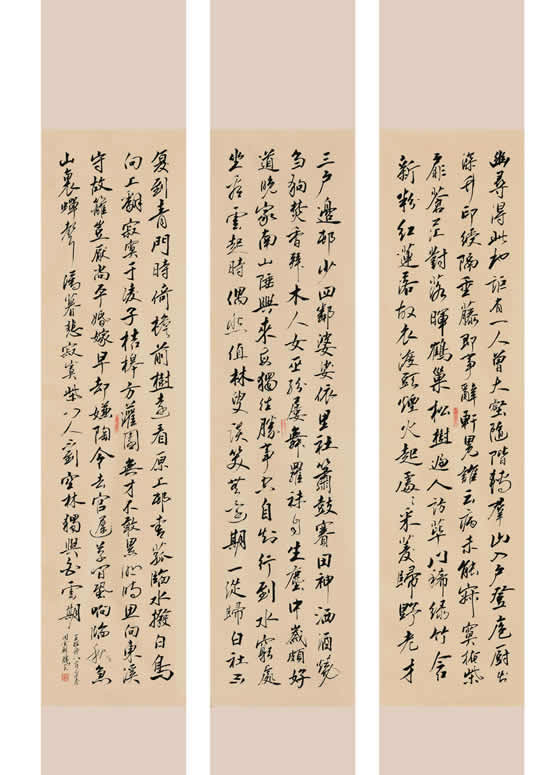 幽尋得此地詎有一人曾大壑隨階轉羣山入戶登庖廚出
深竹印綬隔垂藤即事辭軒冕誰云病未能寂寞掩柴
扉蒼茫對落暉鶴巢松樹遍人訪蓽門稀綠竹含
新粉紅蓮落故衣渡頭煙火起處處采菱歸野老才
三戶邊邨少四鄰婆娑依里社簫鼓賽田神洒酒澆
芻狗焚香拜木人女巫紛屢舞羅袜自生塵中歲頗好
道晚家南山陲興來每獨往勝事空自知行到水窮處
坐看雲起時偶然值林叟談笑無還期一從歸白社不
復到青門時倚檐前樹遠看原上邨青菰臨水撥白鳥
向山翻寂寞于陵子桔槔方灌園無才不敢累明時思向東溪
守故籬豈厭尚平婚嫁早却嫌陶令去官遲草間蛩响臨秋急
山裏蟬聲薄暮悲寂寞柴門人不到空林獨與白雲期